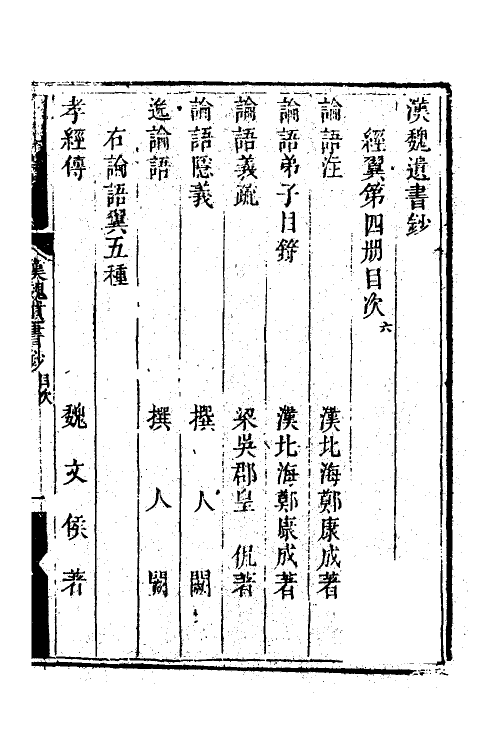 漢魏遺書鈔
經翼第四册目次六
論語注 漢北海鄭康成著
論語弟子目錄 漢北海鄭康成著
論語義疏 梁吳郡皇侃著
論語隱義 撰人闕
逸論語 撰人闕
右論語翼五種
孝經傳 魏文侯著
漢魏遺書鈔 目次 一